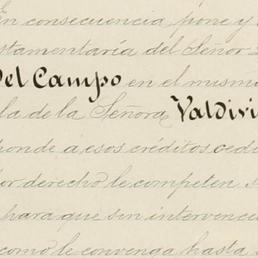 en consecuencia pone y
testamentaría del Señor
Del Campo en el mismo
la de la Señora Valdivi
ponde a esos créditos ced
or derecho le competen
para que sin intervenc
como le convenga hasta